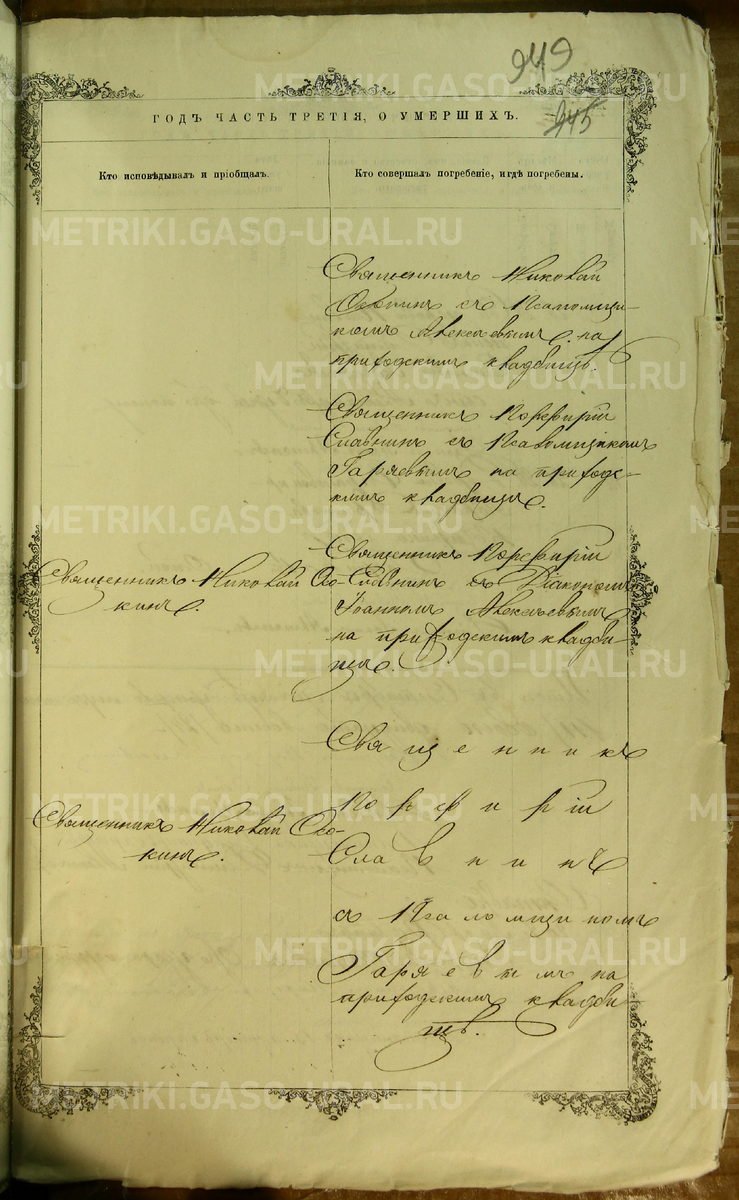 949
945
ГОДЪ ЧАСТЬ ТРЕТІЯ, О УМЕРШИХЪ.
Кто исповѣдывалъ и пріобщалъ.
Кто совершалъ погребеніе, и гдѣ погребены.
Священникъ Николай
съ Псаломщи-
комъ Алексѣевымъ на
приходскимъ кладбищѣ.
Священникъ Порфирій
Славнинъ съ Псаломщикомъ
Гаряевымъ на приходс-
кимъ кладбищѣ.
Священникъ Николай Ос-
кинъ.
Священникъ Порфирій
Славнинъ съ Діакономъ
Іоанномъ Алексѣевымъ
на приходскимъ кладби-
щѣ.
Священникъ Николай Ос-
кинъ.
Священникъ
Порфирій
Славнинъ
съ Псаломщикомъ
Гаряевымъ на
приходскимъ кладби
щѣ.
METRIKI.GASO-URAL.RU